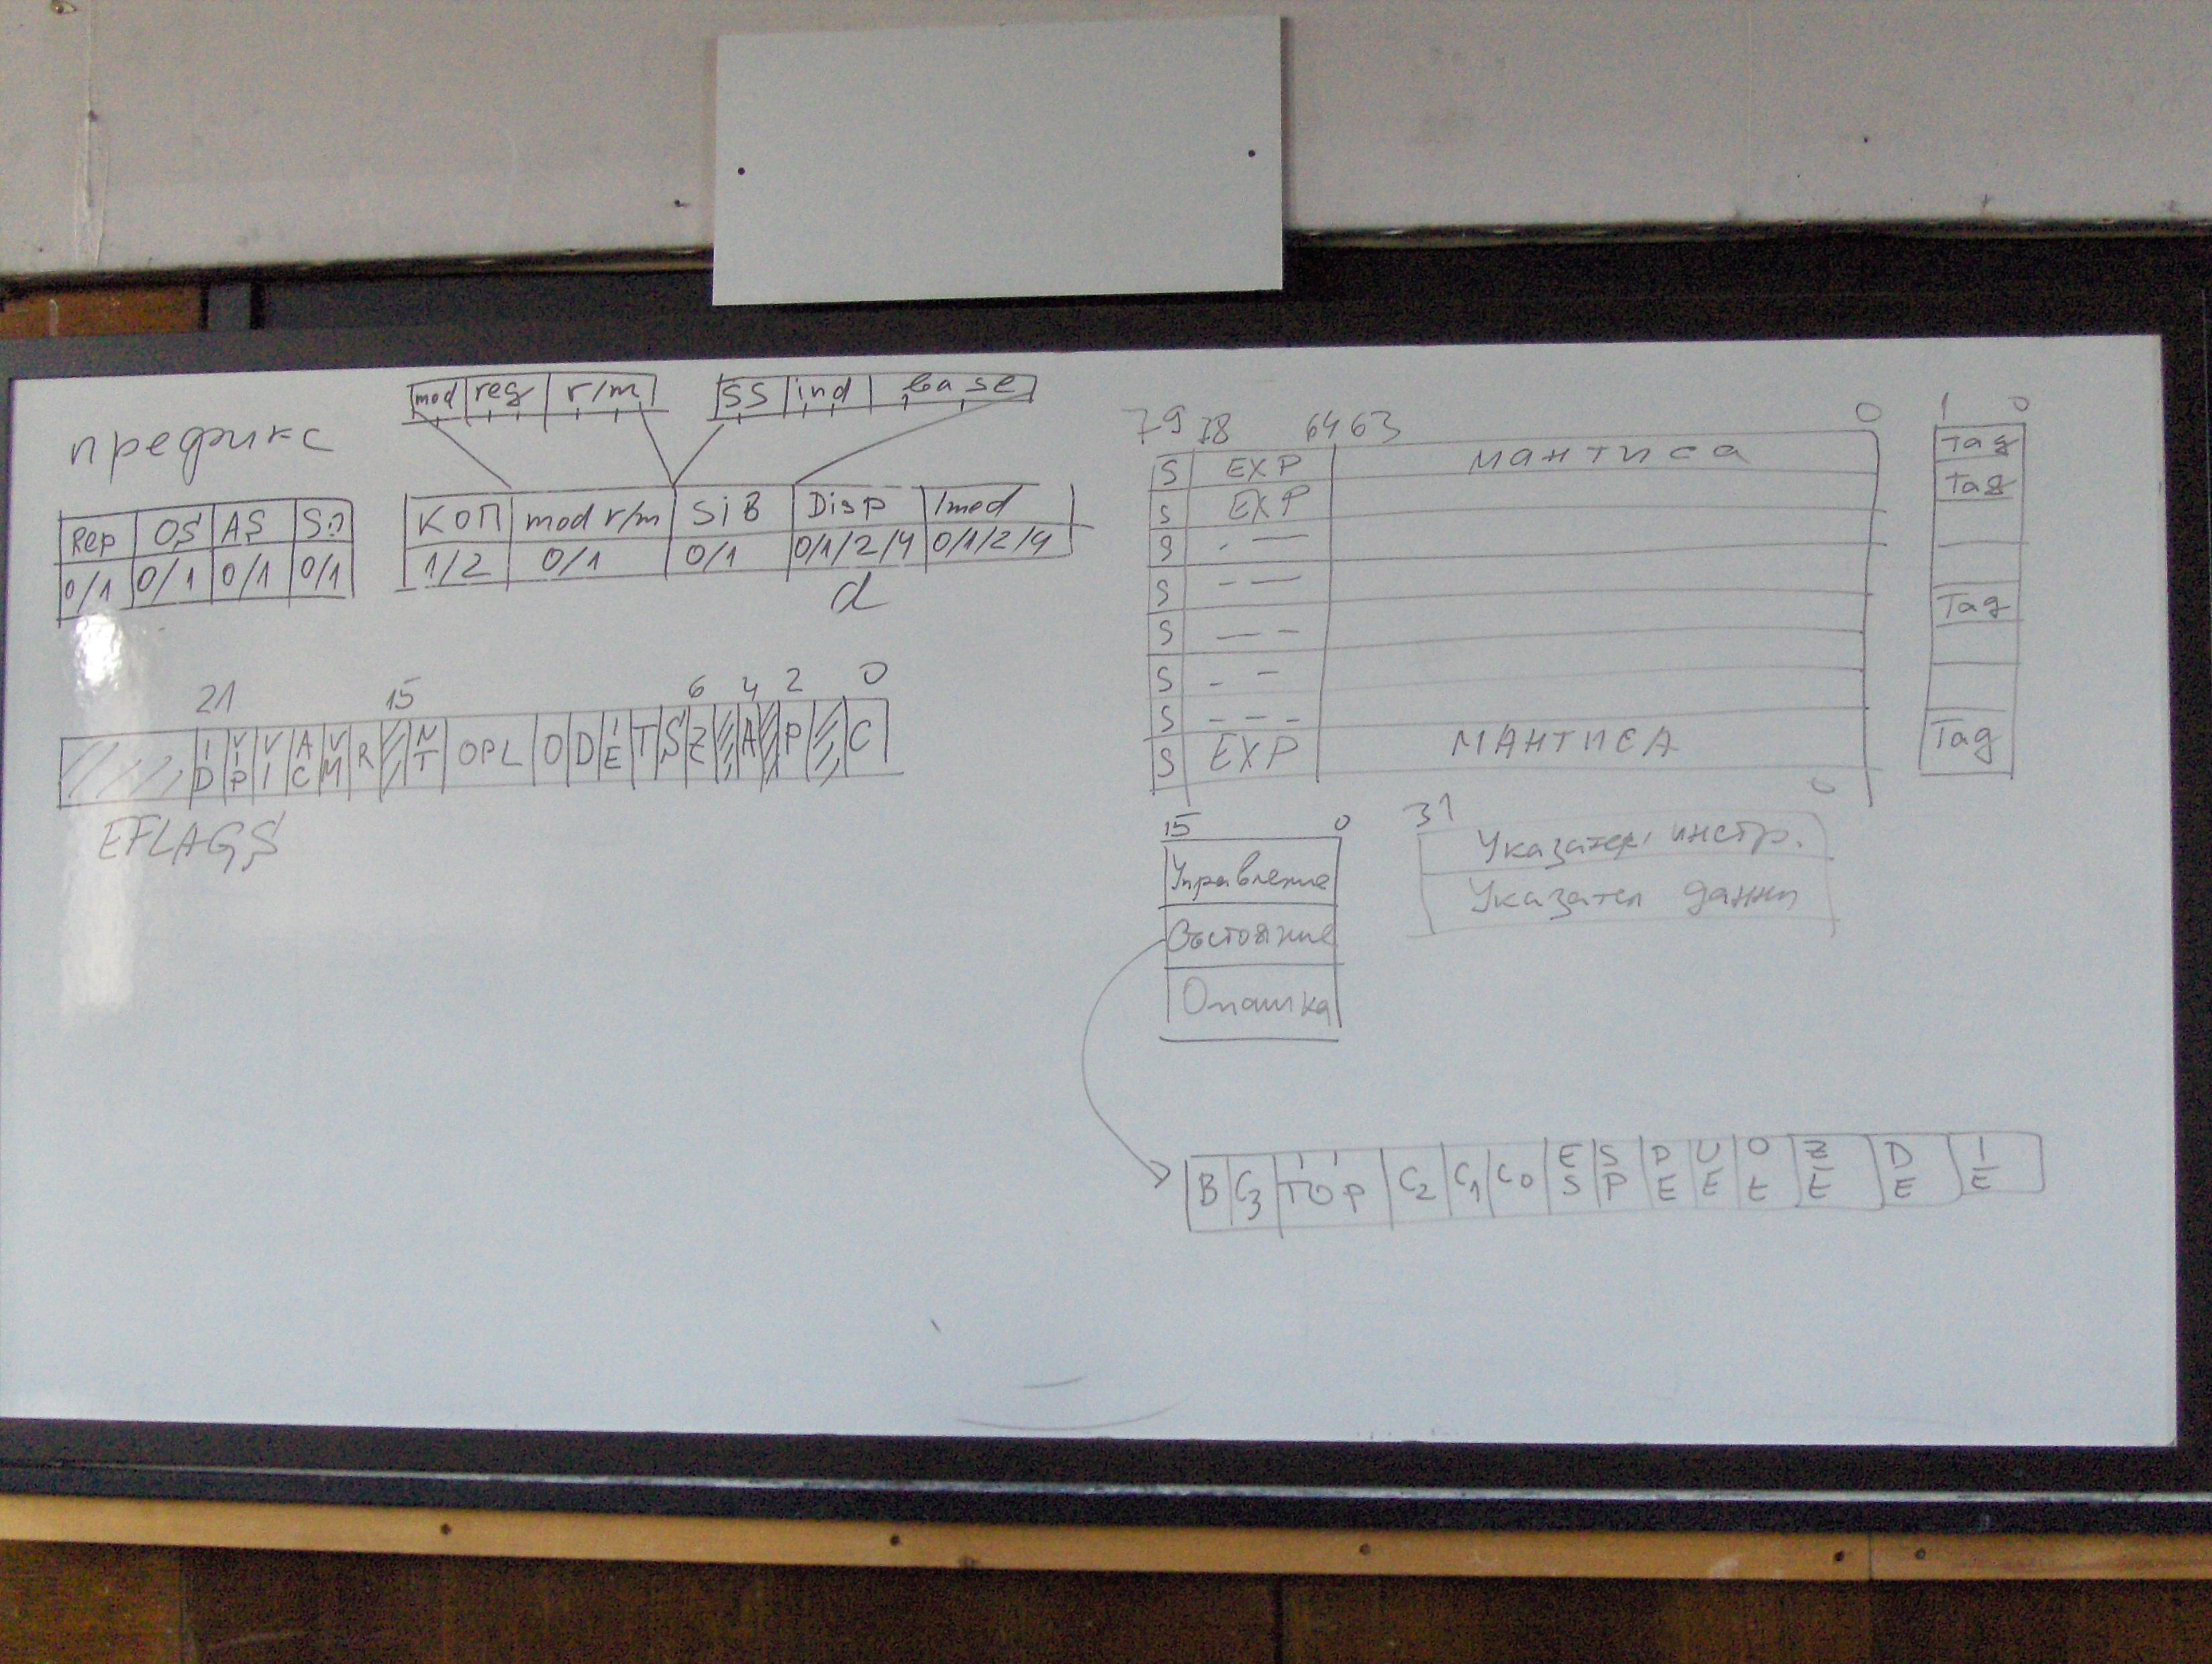 mod reg r/m SS ind base
префикс
Rep OS AS SO
0/1 0/1 0/1 0/1
КОП mod r/m SiB Disp Imod
1/2 0/1 0/1 0/1/2/4 0/1/2/4
d
21 15 6 4 2 0
ID VP VI AC VM R NT OPL O D IE T S Z A P C
EFLAGS
79 78 64 63 0
S EXP мантиса
S EXP
S
S
S
S
S
S EXP МАНТИСА
1 0
Tag
Tag
Tag
Tag
15 0
Управление
Състояние
Опашка
31 0
Указател инстр.
Указател данни
B C3 TOP C2 C1 C0 ES SP PE UE OE ZE DE IE